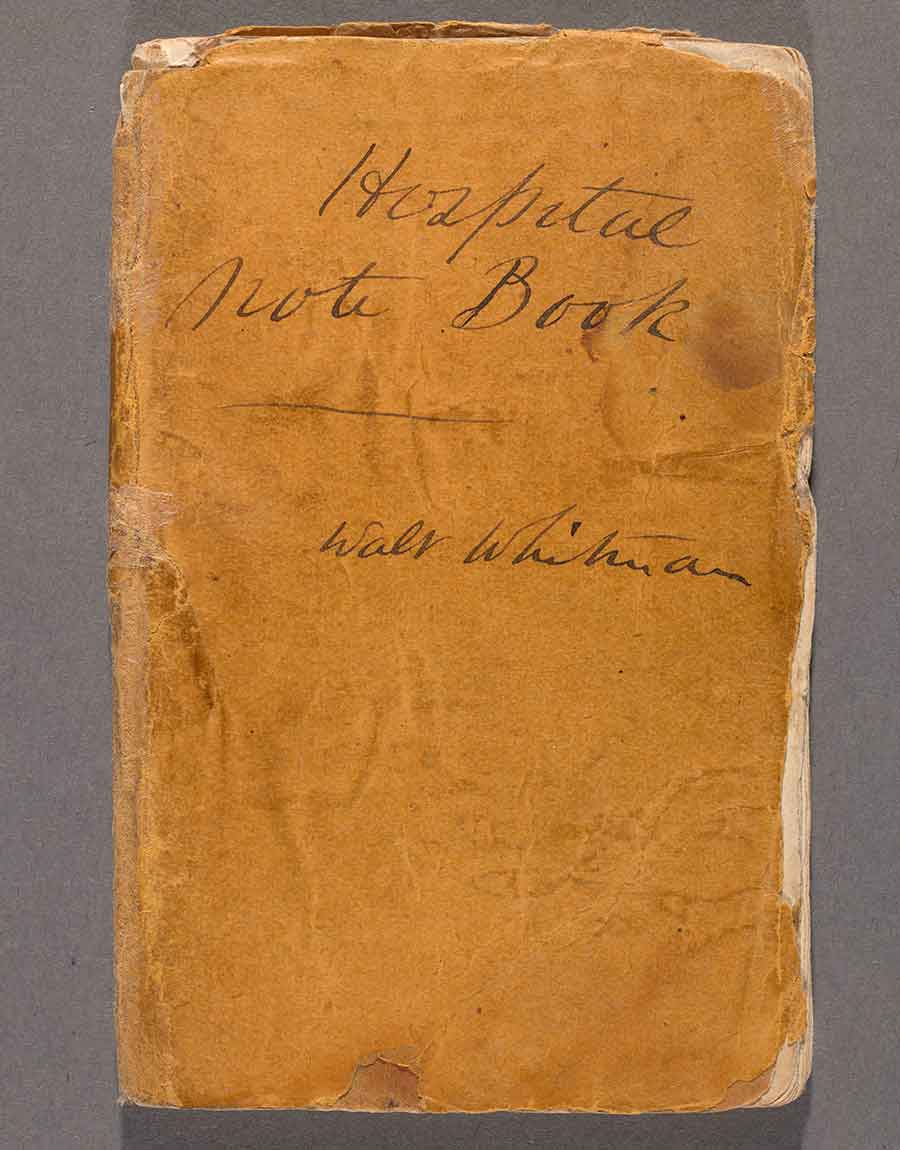 Hospital
Note Book
Walt Whitman